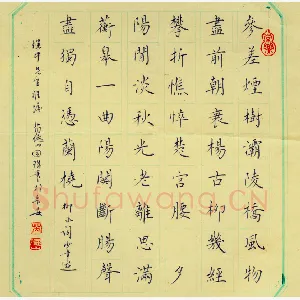 參差煙樹灞陵橋風物
盡前朝衰楊古柳幾經
攀折憔悴楚宮腰 夕
陽閒淡秋光老離思滿
蘅皋一曲陽關斷腸聲
盡獨自憑蘭橈 柳永詞少年遊
先生雅屬
Shufawang.CN